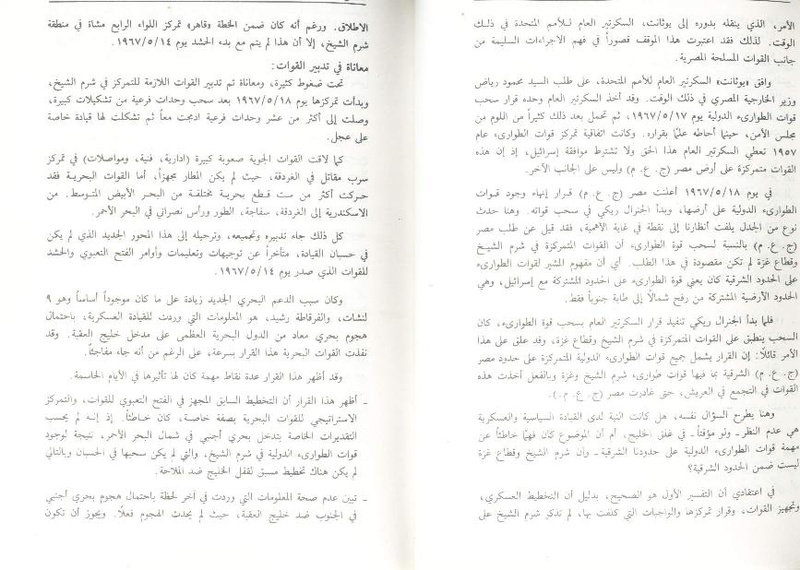 الأمر، الذي ينقله بدوره إلى يوثانت، السكرتير العام للأمم المتحدة في ذلك
الوقت. لذلك فقد اعتبرت هذا الموقف قصوراً في فهم الاجراءات السليمة من
جانب القوات المسلحة المصرية.
وافق «يوثانت» السكرتير العام للأمم المتحدة، على طلب السيد محمود رياض
وزير الخارجية المصري في ذلك الوقت. وقد أخذ السكرتير العام وحده قرار سحب
قوات الطوارىء الدولية يوم ١٩٦٧/٥/١٧، ثم تحمل بعد ذلك كثيراً من اللوم من
مجلس الأمن، حينما أحاطه علماً بقراره. وكانت اتفاقية تمركز قوات الطوارىء عام
١٩٥٧ تعطي السكرتير العام هذا الحق ولا تشترط موافقة إسرائيل، إذ إن هذه
القوات متمركزة على أرض مصر (ج. ع. م) وليس على الجانب الآخر.
في يوم ١٩٦٧/٥/١٨ أعلنت مصر (ج. ع. م) قرار إنهاء وجود قوات
الطوارىء الدولية على أرضها، وبدأ الجنرال ريكي في سحب قواته. وهنا حدث
نوع من الجدل يلفت أنظارنا إلى نقطة في غاية الأهمية، فقد قيل عن طلب مصر
(ج. ع. م) بالنسبة لسحب قوة الطوارىء أن القوات المتمركزة في شرم الشيخ
وقطاع غزة لم تكن مقصودة في هذا الطلب. أي أن مفهوم المشير لقوات الطوارىء
على الحدود الشرقية كان يعني قوة الطوارىء على الحدود المشتركة مع إسرائيل، وهي
الحدود الأرضية المشتركة من رفح شمالاً إلى طابة جنوباً فقط.
فلما بدأ الجنرال ريكي تنفيذ قرار السكرتير العام بسحب قوة الطوارىء، كان
السحب ينطبق على القوات المتمركزة في شرم الشيخ وقطاع غزة، وقد علق على هذا
الأمر قائلاً: إن القرار يشمل جميع قوات الطوارىء الدولية المتمركزة على حدود مصر
(ج. ع. م) الشرقية بما فيها قوات طوارىء شرم الشيخ وغزة وبالفعل أخذت هذه
القوات في التجمع في العريش، حتى غادرت مصر (ج. ع. م.).
وهنا يطرح السؤال نفسه، هل كانت النية لدى القيادة السياسية والعسكرية
هي عدم النظر ـ ولو مؤقتاً ـ في غلق الخليج، أم أن الموضوع كان فهماً خاطئاً عن
مهمة قوات الطوارىء الدولية على حدودنا الشرقية ـ وأن شرم الشيخ وقطاع غزة
ليست ضمن الحدود الشرقية؟
في اعتقادي أن التفسير الأول هو الصحيح، بدليل أن التخطيط العسكري،
وتجهيز القوات، وقرار تمركزها والواجبات التي كلفت بها، لم تذكر شرم الشيخ على
الاطلاق. ورغم أنه كان ضمن الخطة «قاهر» تمركز اللواء الرابع مشاة في منطقة
شرم الشيخ، إلا أن هذا لم يتم مع بدء الحشد يوم ١٩٦٧/٥/١٤.
معاناة في تدبير القوات:
تحت ضغوط كثيرة، ومعاناة تم تدبير القوات اللازمة للتمركز في شرم الشيخ،
وبدأت تمركزها يوم ١٩٦٧/٥/١٨ بعد سحب وحدات فرعية من تشكيلات كبيرة،
وصلت إلى أكثر من عشر وحدات فرعية ادمجت معاً ثم تشكلت لها قيادة خاصة
على عجل.
كما لاقت القوات الجوية صعوبة كبيرة (ادارية، فنية، ومواصلات) في تمركز
سرب مقاتل في الغردقة، حيث لم يكن المطار مجهزاً، أما القوات البحرية فقد
حركت أكثر من ست قطع بحرية مختلفة من البحر الأبيض المتوسط. من
الاسكندرية إلى الغردقة، سفاجة، الطور ورأس نصراني في البحر الأحمر.
كل ذلك جاء تدبيره وتجميعه، وترحيله إلى هذا المحور الجديد الذي لم يكن
في حسبان القيادة، متأخراً عن توجيهات وتعليمات وأوامر الفتح التعبوي والحشد
للقوات الذي صدر يوم ١٩٦٧/٥/١٤.
وكان سبب الدعم البحري الجديد زيادة على ما كان موجوداً أساساً وهو ٩
لنشات، والفرقاطة رشيد، هو المعلومات التي وردت للقيادة العسكرية، باحتمال
هجوم بحري معاد من الدول البحرية العظمى على مدخل خليج العقبة. وقد
نفذت القوات البحرية هذا القرار بسرعة، على الرغم من أنه جاء مفاجئاً.
وقد أظهر هذا القرار عدة نقاط مهمة كان لها تأثيرها في الأيام الحاسمة.
ـ أظهر هذا القرار أن التخطيط السابق المجهز في الفتح التعبوي للقوات، والتمركز
الاستراتيجي للقوات البحرية بصفة خاصة، كان خاطئاً. إذ إنه لم يحسب
التقديرات الخاصة بتدخل بحري أجنبي في شمال البحر الأحمر، نتيجة لوجود
قوات الطوارىء الدولية في شرم الشيخ، والتي لم يكن سحبها في الحسبان وبالتالي
لم يكن هناك تخطيط مسبق لقفل الخليج ضد الملاحة.
ـ تبين عدم صحة المعلومات التي وردت في آخر لحظة باحتمال هجوم بحري أجنبي
في الجنوب ضد خليج العقبة، حيث لم يحدث الهجوم فعلاً. ويجوز أن تكون